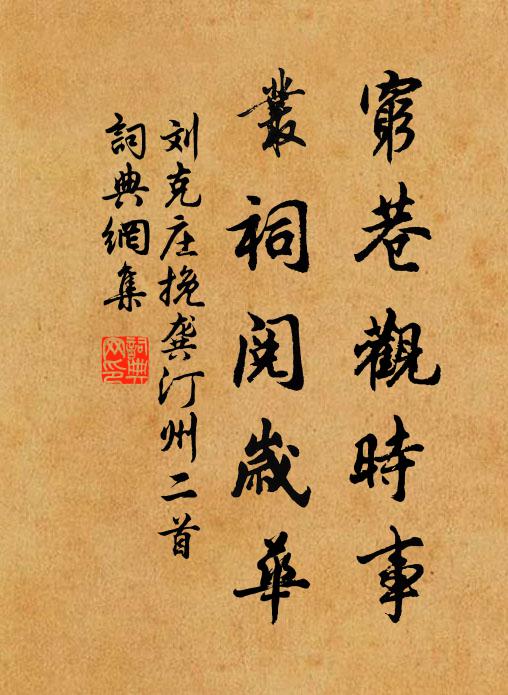 窮巷觀時事
叢祠閱歲華
刘克庄挽龚汀州二首
詞典網集
詞典網印